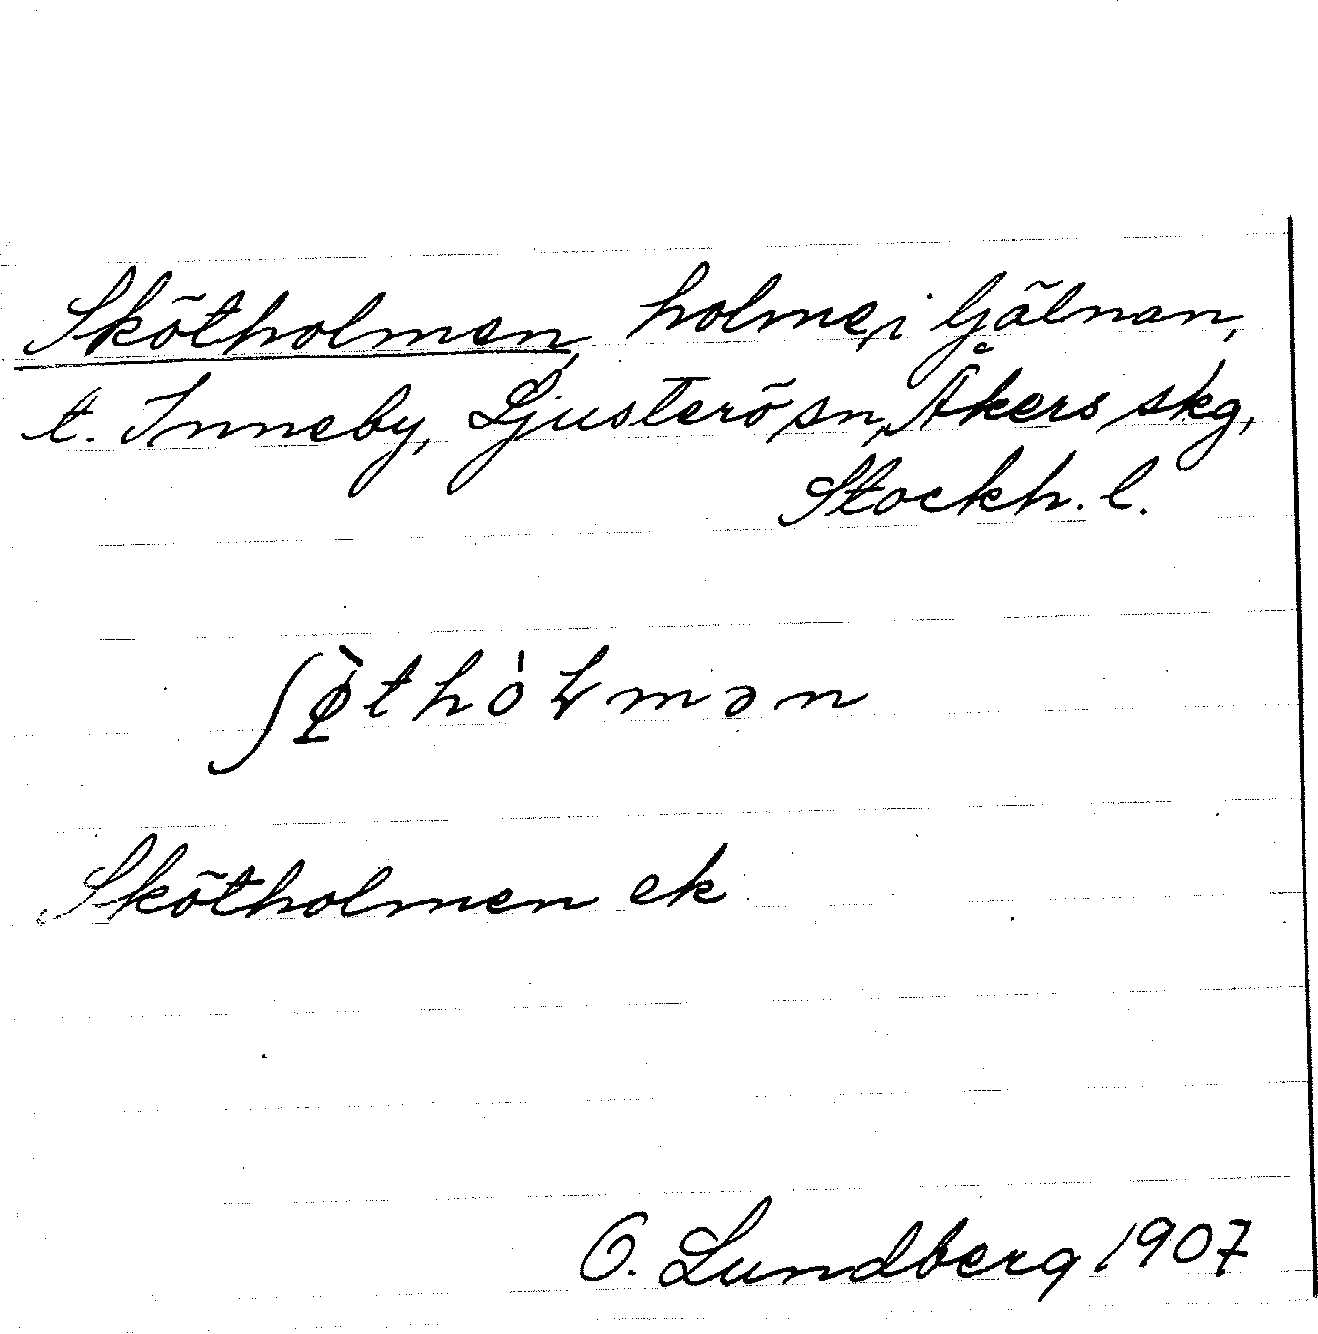 Skötholmen, holme, i ljälnan,
t. Inneby, Ljusterö sn, Åkers skg,
Stockh. l.
ʃø̀thòlmən
Skötholmen ek
O. Lundberg 1907